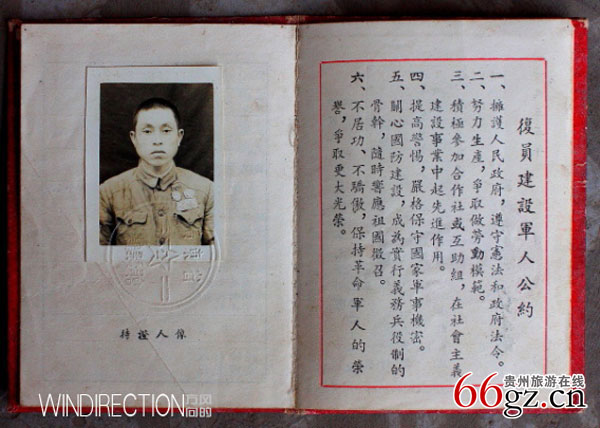 持證人像
復員建設軍人公約
一、擁護人民政府，遵守憲法和政府法令。
二、努力生產，爭取做勞動模範。
三、積極參加合作社或互助組，在社會主義
建設事業中起先進作用。
四、提高警惕，嚴格保守國家軍事機密。
五、關心國防建設，成為實行義務兵役制的
骨幹，隨時響應祖國徵召。
六、不居功、不驕傲，保持革命軍人的榮
譽，爭取更大光榮。
WINDIRECTION 风的方向
贵州旅游在线
66gz.cn